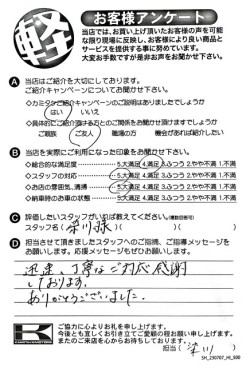 軽
お客様アンケート
当店では、お買い上げ頂いたお客様の声を可能
な限り現場に反映し、お客様により良い商品と
サービスを提供する事に努めています。
大変お手数ですが是非お声をお聞かせ下さい。
A 当店はご紹介を大切にしております。
ご紹介キャンペーンについてお聞かせ下さい。
◇カミタケご紹介キャンペーンのご説明はありましたでしょうか
はい いいえ
◇具体的にご紹介頂ける方とのご関係をお聞かせ頂けますでしょうか
ご親族 ご友人 職場の方 機会があれば紹介したい
B 当店を実際にご利用になった印象をお聞かせ下さい。
◇総合的な満足度 5.大満足 4.満足 3.ふつう 2.やや不満 1.不満
◇スタッフの対応 5.大満足 4.満足 3.ふつう 2.やや不満 1.不満
◇お店の雰囲気、清掃 5.大満足 4.満足 3.ふつう 2.やや不満 1.不満
◇納車時のお車の状態 5.大満足 4.満足 3.ふつう 2.やや不満 1.不満
C 評価したいスタッフがいれば教えてください。(複数回答可)
スタッフ名( 栄川様 )( )( )
D 担当させて頂きましたスタッフへのご指摘、ご指導メッセージを
お願いします。応援メッセージもぜひお願いします。
迅速、丁寧なご対応感謝
しております。
ありがとうございました。
ご協力に心よりお礼を申し上げます。
今後とも宜しくお引き立てご愛顧の程お願い申し上げます。
またのご来店を心からお待ちしております。
担当( 栄川 )
SH_230707_HI_900